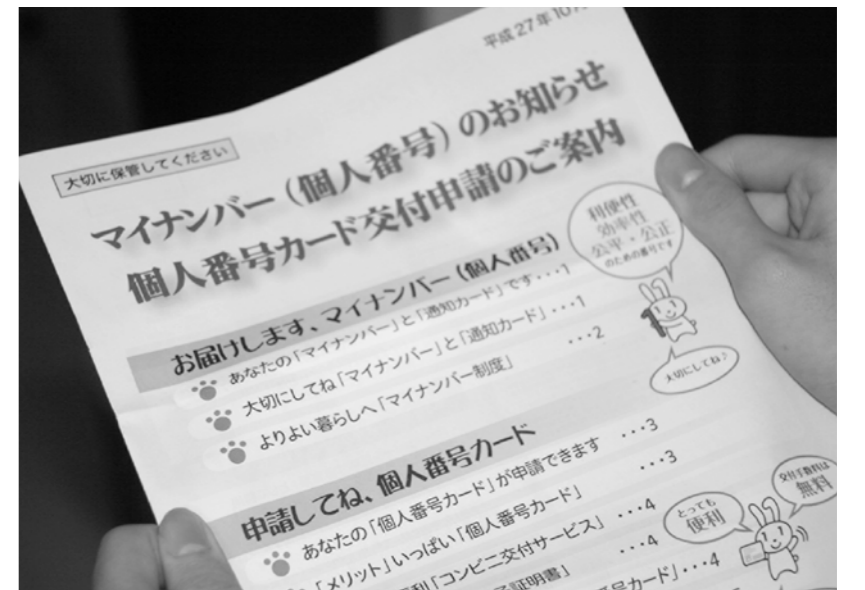 平成27年10
大切に保管してください
マイナンバー(個人番号)のお知らせ
個人番号カード交付申請のご案内
利便性
効率性
公平・公正
のための番号です
お届けします、マイナンバー(個人番号)
あなたの「マイナンバー」と「通知カード」です・・・1
大切にしてね「マイナンバー」と「通知カード」・・・1
よりよい暮らしへ「マイナンバー制度」 ・・・2
大切にしてね♪
申請してね、個人番号カード
あなたの「個人番号カード」が申請できます ・・・3
「メリット」いっぱい「個人番号カード」 ・・・3
利「コンビニ交付サービス」 ・・・4
子証明書」 ・・・4
番号カード」・・・4
とっても
便利
交付手数料は
無料